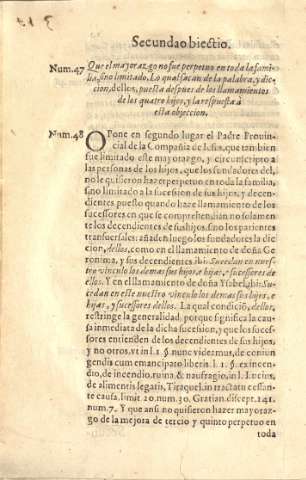 Secunda obiectio.
Num.47 Que el mayorazgo no fue perpetuo en toda la fami-
lia, sino limitado. Lo qual sacan de la palabra, y dic-
cion, dellos, puesta despues de los llamamientos
de los quatro hijos, y la respuesta à
esta objeccion.
Num.48 OPone en segundo lugar el Padre Prouin-
cial de la Compañia de Iesus, que tambien
fue limitado este mayorazgo, y circunscripto a
las personas de los hijos, que los fundadores del,
no le quisieron hazer perpetuo en toda la familia,
sino limitado a la sucession de sus hijos, y decen-
dientes puesto quando haze llamamiento de los
sucessores en que se comprehendiã no solamen
te los decendientes de sus hijos, sino los parientes
transuersales: añaden luego los fundadores la di-
cion, dellos, como en el llamamiento de doña Ge
ronima, y sus decendientes ibi: Sucedan en nues-
tro vinculo los demas sus hijos e hijas, y sucessores de
ellos. Y en el llamamiento de doña Ysabel ibi: Su-
cedan en este nuestro vinculo los demas sus hijos, e
hijas, y sucessores dellos. La qual condiciõ, dellos,
restringe la generalidad, porque significa la cau-
sa inmediata de la dicha sucession, y que los suces-
sores entienden de los decendientes de sus hijos,
y no otros, vt in l. 1. §. nunc videamus, de coniun
gendis cum emancipato liberis. l. 1. §. ex incen-
dio, de incendio, ruina & naufragio, in l. Lucius,
de alimentis legatis, Tiraquel. in tractatu cessan-
te causa, limit. 20. num. 30. Gratian. discept. 141.
num. 7. Y que ansi no quisieron hazer mayoraz-
go de la mejora de tercio y quinto perpetuo en
toda